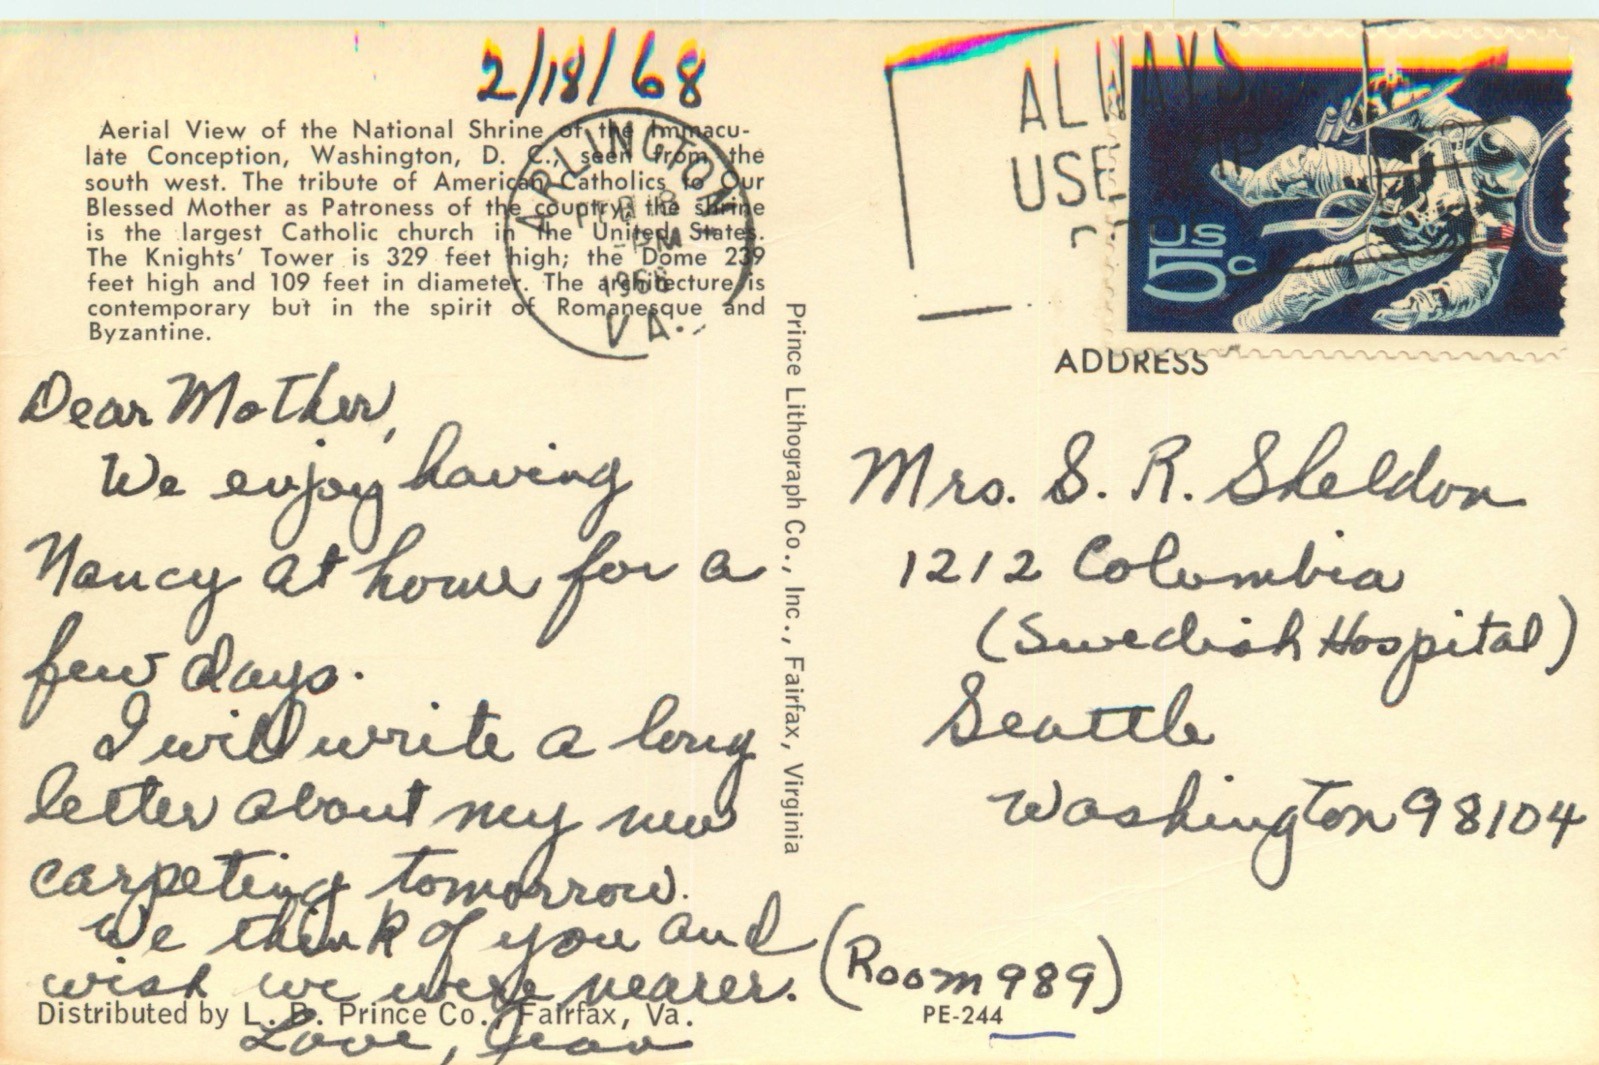 2/18/68
Aerial View of the National Shrine of the Immacu-
late Conception, Washington, D. C., seen from the
south west. The tribute of American Catholics to Our
Blessed Mother as Patroness of the country, the shrine
is the largest Catholic church in the United States.
The Knights' Tower is 329 feet high; the Dome 239
feet high and 109 feet in diameter. The architecture is
contemporary but in the spirit of Romanesque and
Byzantine.
ARLINGTON
PM
VA.
ALWAYS
USE ZIP
US
5c
Dear Mother,
We enjoy having
Nancy at home for a
few days.
I will write a long
letter about my new
carpeting tomorrow.
We think of you and
wish we were nearer.
Love, Jean
Distributed by L. B. Prince Co., Fairfax, Va.
Prince Lithograph Co., Inc., Fairfax, Virginia
ADDRESS
Mrs. S. R. Sheldon
1212 Columbia
(Swedish Hospital)
Seattle
Washington 98104
(Room 989)
PE-244